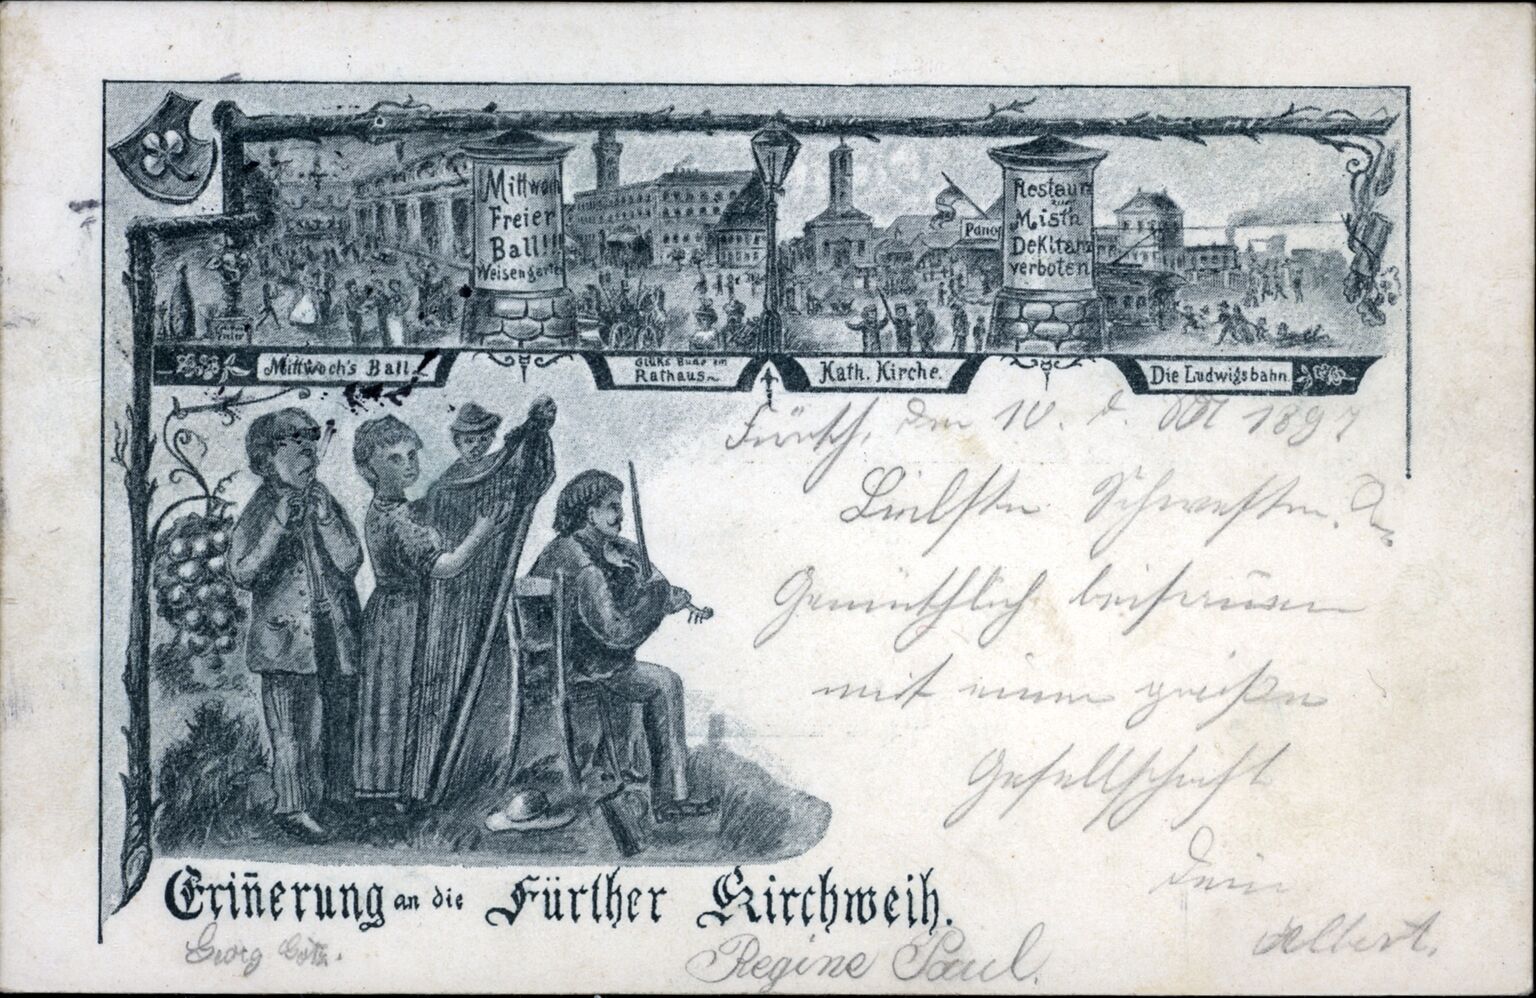 Mittwoch
Freier
Ball!!!
Weisengarten
Restaur
zur
Mistn
DeKltanz
verboten
Pano
Mittwoch's Ball.
Glüks Bude im
Rathaus.
Kath. Kirche.
Die Ludwigsbahn.
Fürth, den 10. d. Okt 1897
Liebste Schwester.
Gemüthlich beisammen
mit einer großen
Gesellschaft
Dein
Albert.
Eriñerung an die Fürther Kirchweih.
Georg Götz.
Regine Paul.